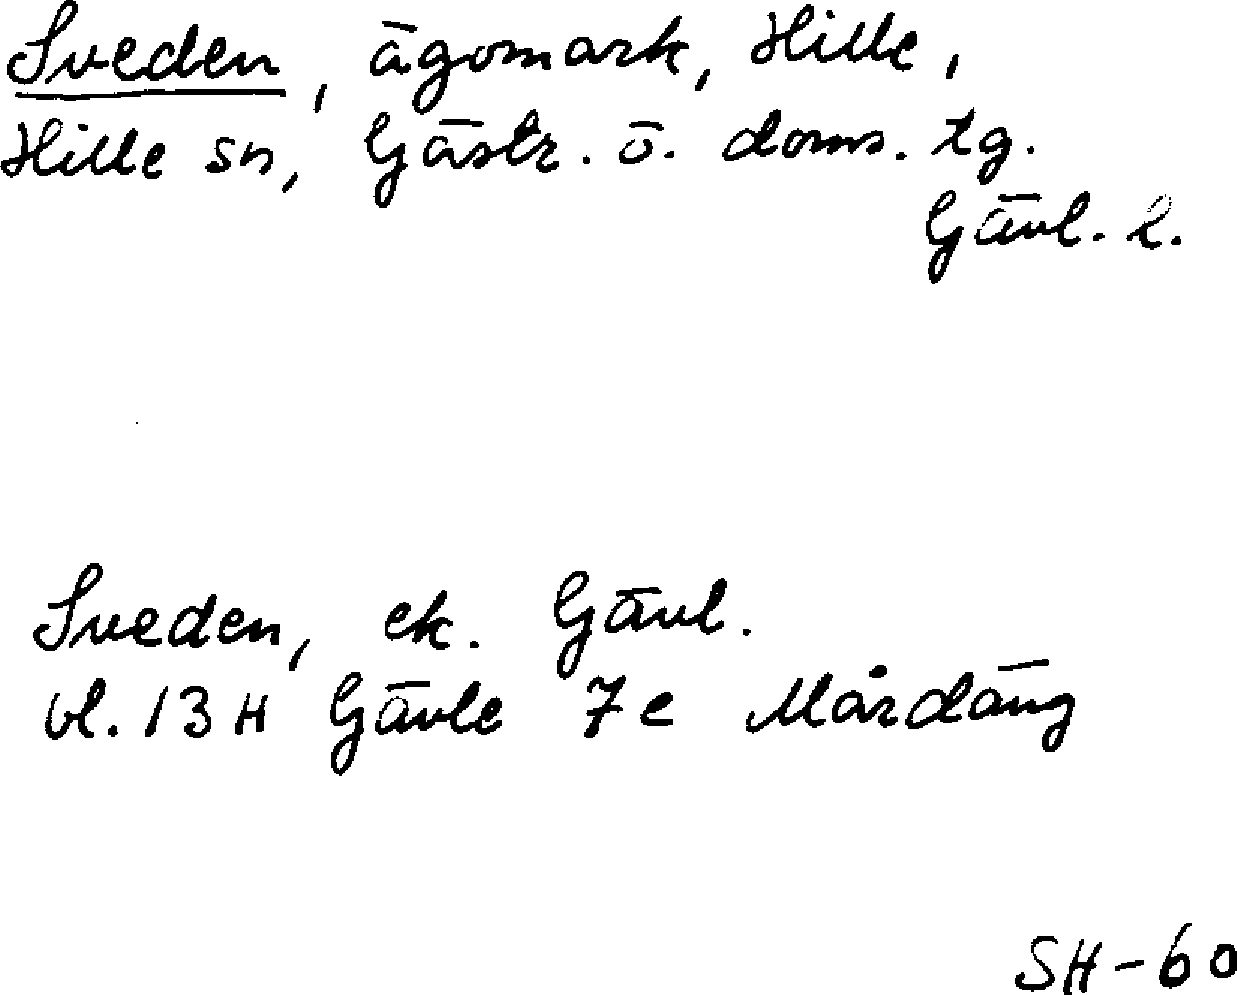 Sveden, ägomark, Hille,
Hille sn, Gästr. ö. doms. tg.
Gävl. l.
Sveden, ek. Gävl.
bl. 13 H Gävle 7e Mårdäng
SH-60